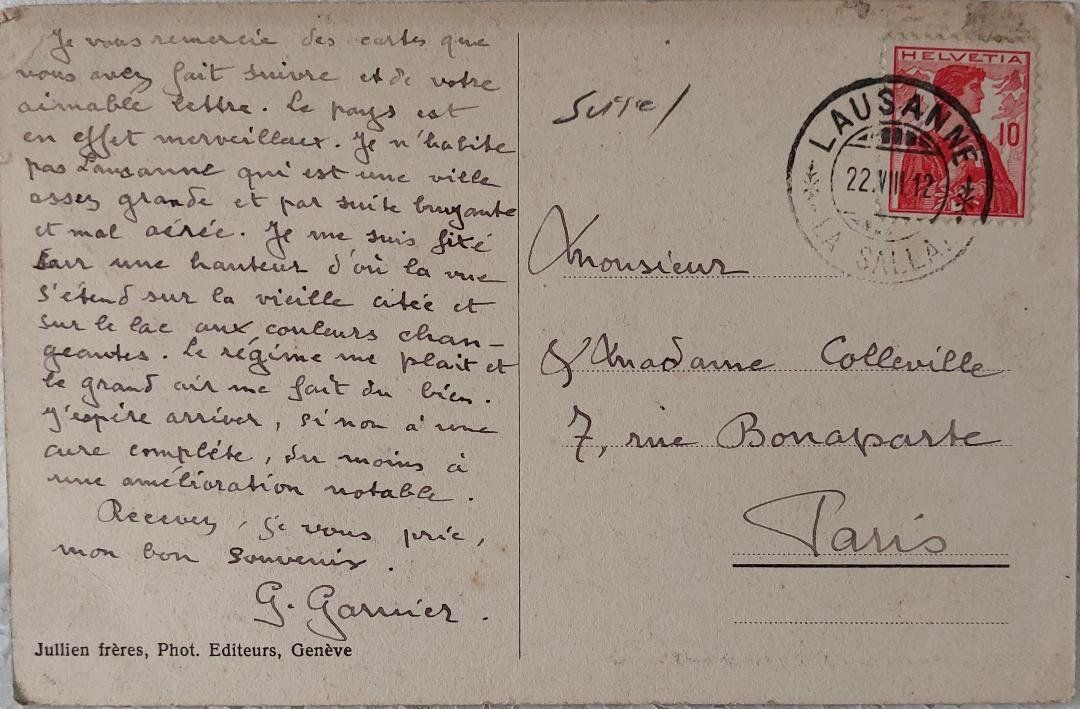 Je vous remercie des cartes que
vous avez fait suivre et de votre
aimable lettre. Le pays est
en effet merveilleux. Je n'habite
pas Lausanne qui est une ville
assez grande et par suite bruyante
et mal aérée. Je me suis fixé
sur une hauteur d'où la vue
s'étend sur la vieille citée et
sur le lac aux couleurs chan-
geantes. Le régime me plait et
le grand air me fait du bien.
J'espère arriver, si non à une
cure complète, du moins à
une amélioration notable.
Recevez, je vous prie,
mon bon souvenir.
G. Garnier.
Jullien frères, Phot. Editeurs, Genève
HELVETIA
10
LAUSANNE
22.VIII.12
Monsieur
& Madame Colleville
7, rue Bonaparte
Paris